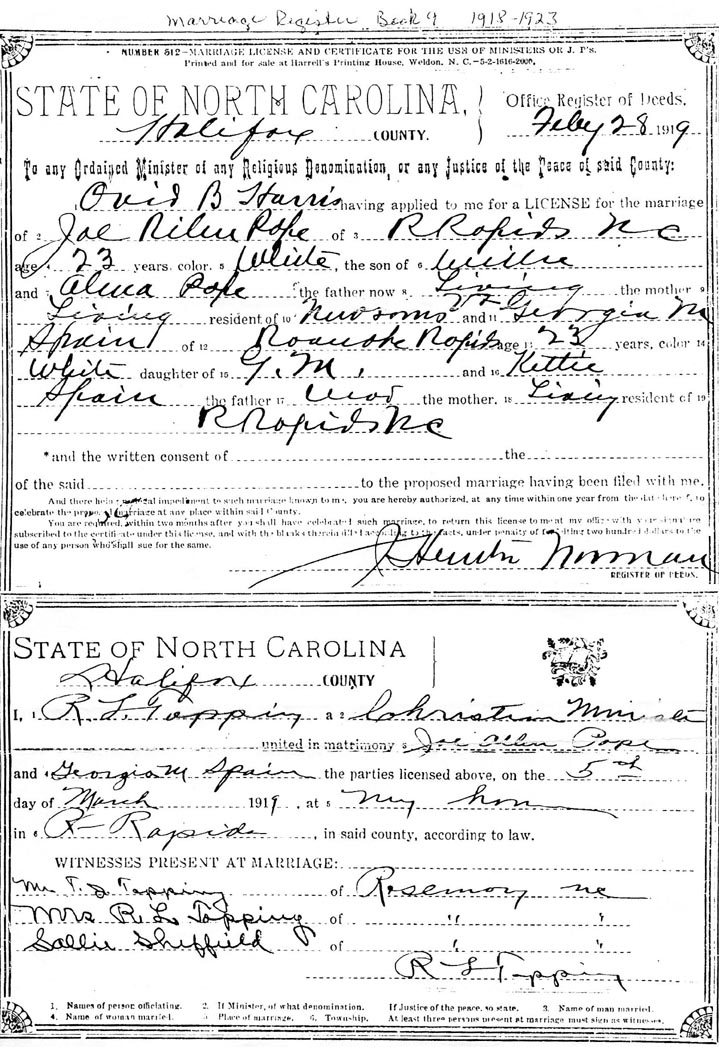 Marriage Register Book 9 1918-1923
NUMBER 512—MARRIAGE LICENSE AND CERTIFICATE FOR THE USE OF MINISTERS OR J. P's.
Printed and for sale at Harrell's Printing House, Weldon, N. C.—5-2-1616-2000.
STATE OF NORTH CAROLINA, Office Register of Deeds,
Halifax COUNTY. Feby 28 1919
To any Ordained Minister of any Religious Denomination, or any Justice of the Peace of said County:
Ovid B Harris having applied to me for a LICENSE for the marriage
of 2 Joe Pope of 3 R Rapids NC
age 4 23 years, color 5 White, the son of 6 Willie
and 7 Alma Pope the father now 8 Living the mother 9
Living resident of 10 Newsoms Va and 11 Georgia M
Spain of 12 Roanoke Rapids age 13 23 years, color 14
White daughter of 15 G. M. and 16 Kettie
Spain the father 17 the mother, 18 Living resident of 19
R Rapids NC
*and the written consent of the
of the said to the proposed marriage having been filed with me.
And there being no legal impediment to such marriage known to me, you are hereby authorized, at any time within one year from the date hereof, to
celebrate the proposed marriage at any place within said County.
You are required, within two months after you shall have celebrated such marriage, to return this license to me at my office with your signature
subscribed to the certificate under this license, and with the blanks therein filled according to the facts, under penalty of forfeiting two hundred dollars to the
use of any person who shall sue for the same.
Norman
REGISTER OF DEEDS.
STATE OF NORTH CAROLINA
Halifax COUNTY
I, 1 R L Topping a 2 Christian Minister
united in matrimony 3 Joe Pope
and 4 Georgia M Spain the parties licensed above, on the 5th
day of March 1919, at 5 my home
in 6 R Rapids, in said county, according to law.
WITNESSES PRESENT AT MARRIAGE:
Topping of Rosemary NC
Mrs R. L. Topping of " "
Sallie Sheffield of " "
R L Topping
1. Names of person officiating. 2. If Minister, of what denomination. If Justice of the peace, so state. 3. Name of man married.
4. Name of woman married. 5 Place of marriage. 6. Township. At least three persons present at marriage must sign as witnesses.